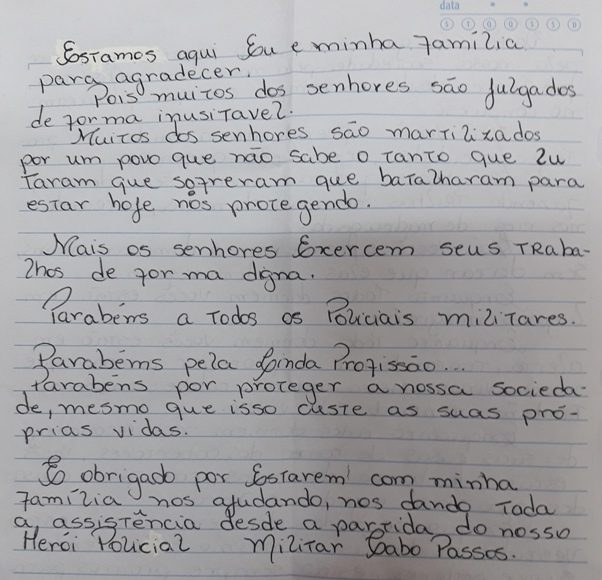 data
Estamos aqui Eu e minha família
para agradecer.
Pois muitos dos senhores são julgados
de forma inusitavel.
Muitos dos senhores são martilizados
por um povo que não sabe o tanto que lu
taram que sofreram que batalharam para
estar hoje nos protegendo.
Mais os senhores Exercem seus Traba-
lhos de forma digna.
Parabéns a Todos os Policiais militares.
Parabéms pela Linda Profissão...
Parabéns por proteger a nossa socieda-
de, mesmo que isso custe as suas pró-
prias vidas.
E obrigado por Estarem com minha
família nos ajudando, nos dando Toda
a assistência desde a partida do nosso
Herói Policial Militar Cabo Passos.